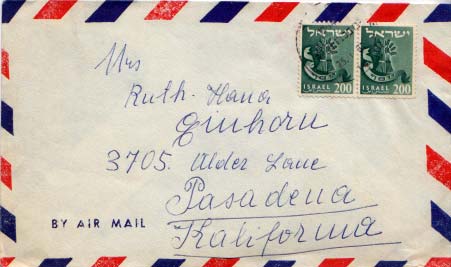 ישראל ישראל
ISRAEL 200 ISRAEL 200
Mrs
Ruth-Hana
Einhorn
3705. Alder Lane
Pasadena
BY AIR MAIL
Kalifornia